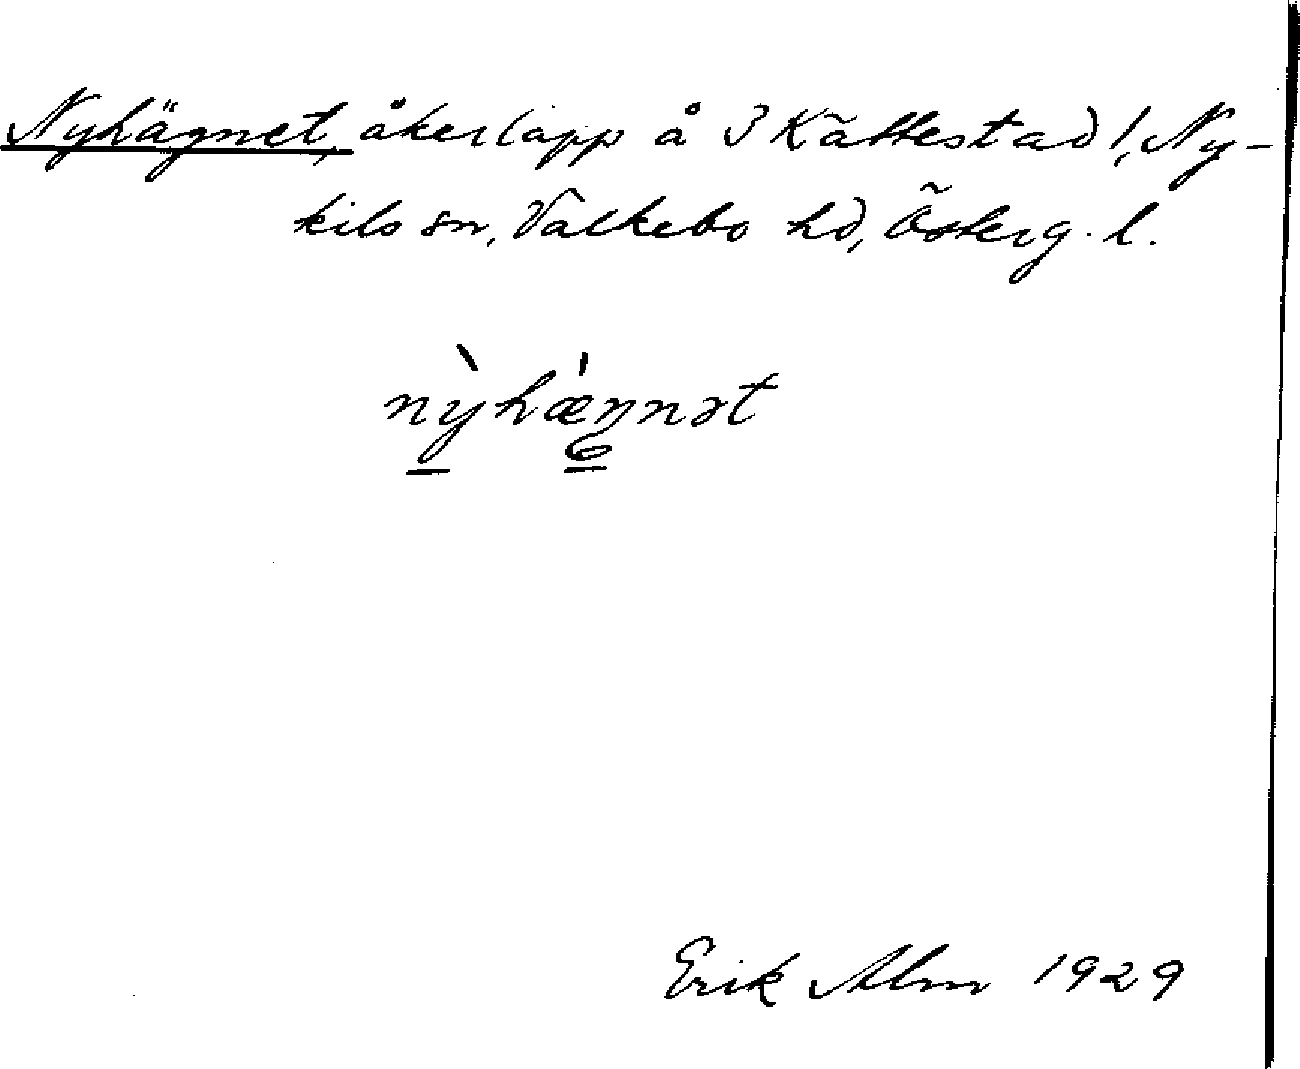 Nyhägnet, åkerlapp å 3 Kättestad!, Ny-
kils sn, Valkebo hd, Österg. l.
nỳhæ̀ŋnət
Erik Alm 1929